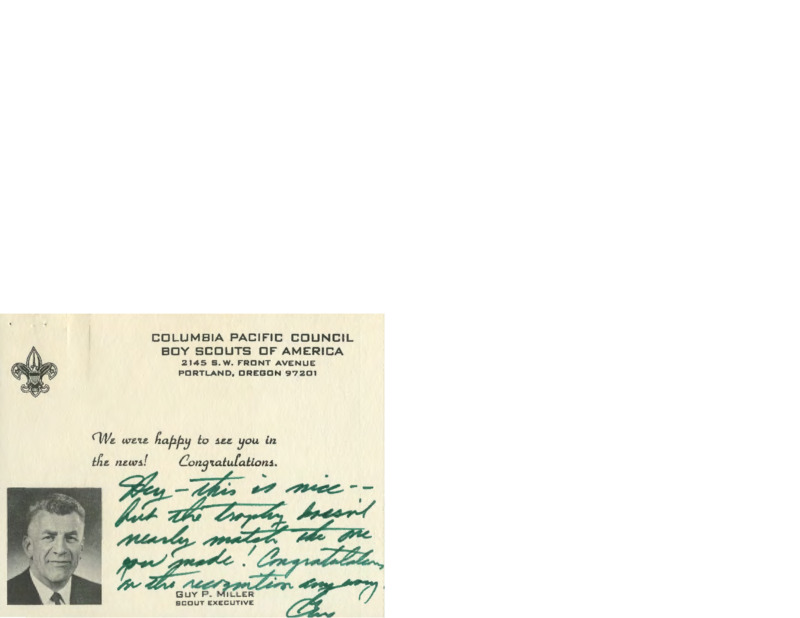 COLUMBIA PACIFIC COUNCIL
BOY SCOUTS OF AMERICA
2145 S.W. FRONT AVENUE
PORTLAND, OREGON 97201
We were happy to see you in
the news! Congratulations.
Hey - this is nice --
but the trophy doesn't
nearly match the one
you made! Congratulations
on the recognition any way.
GUY P. MILLER
SCOUT EXECUTIVE